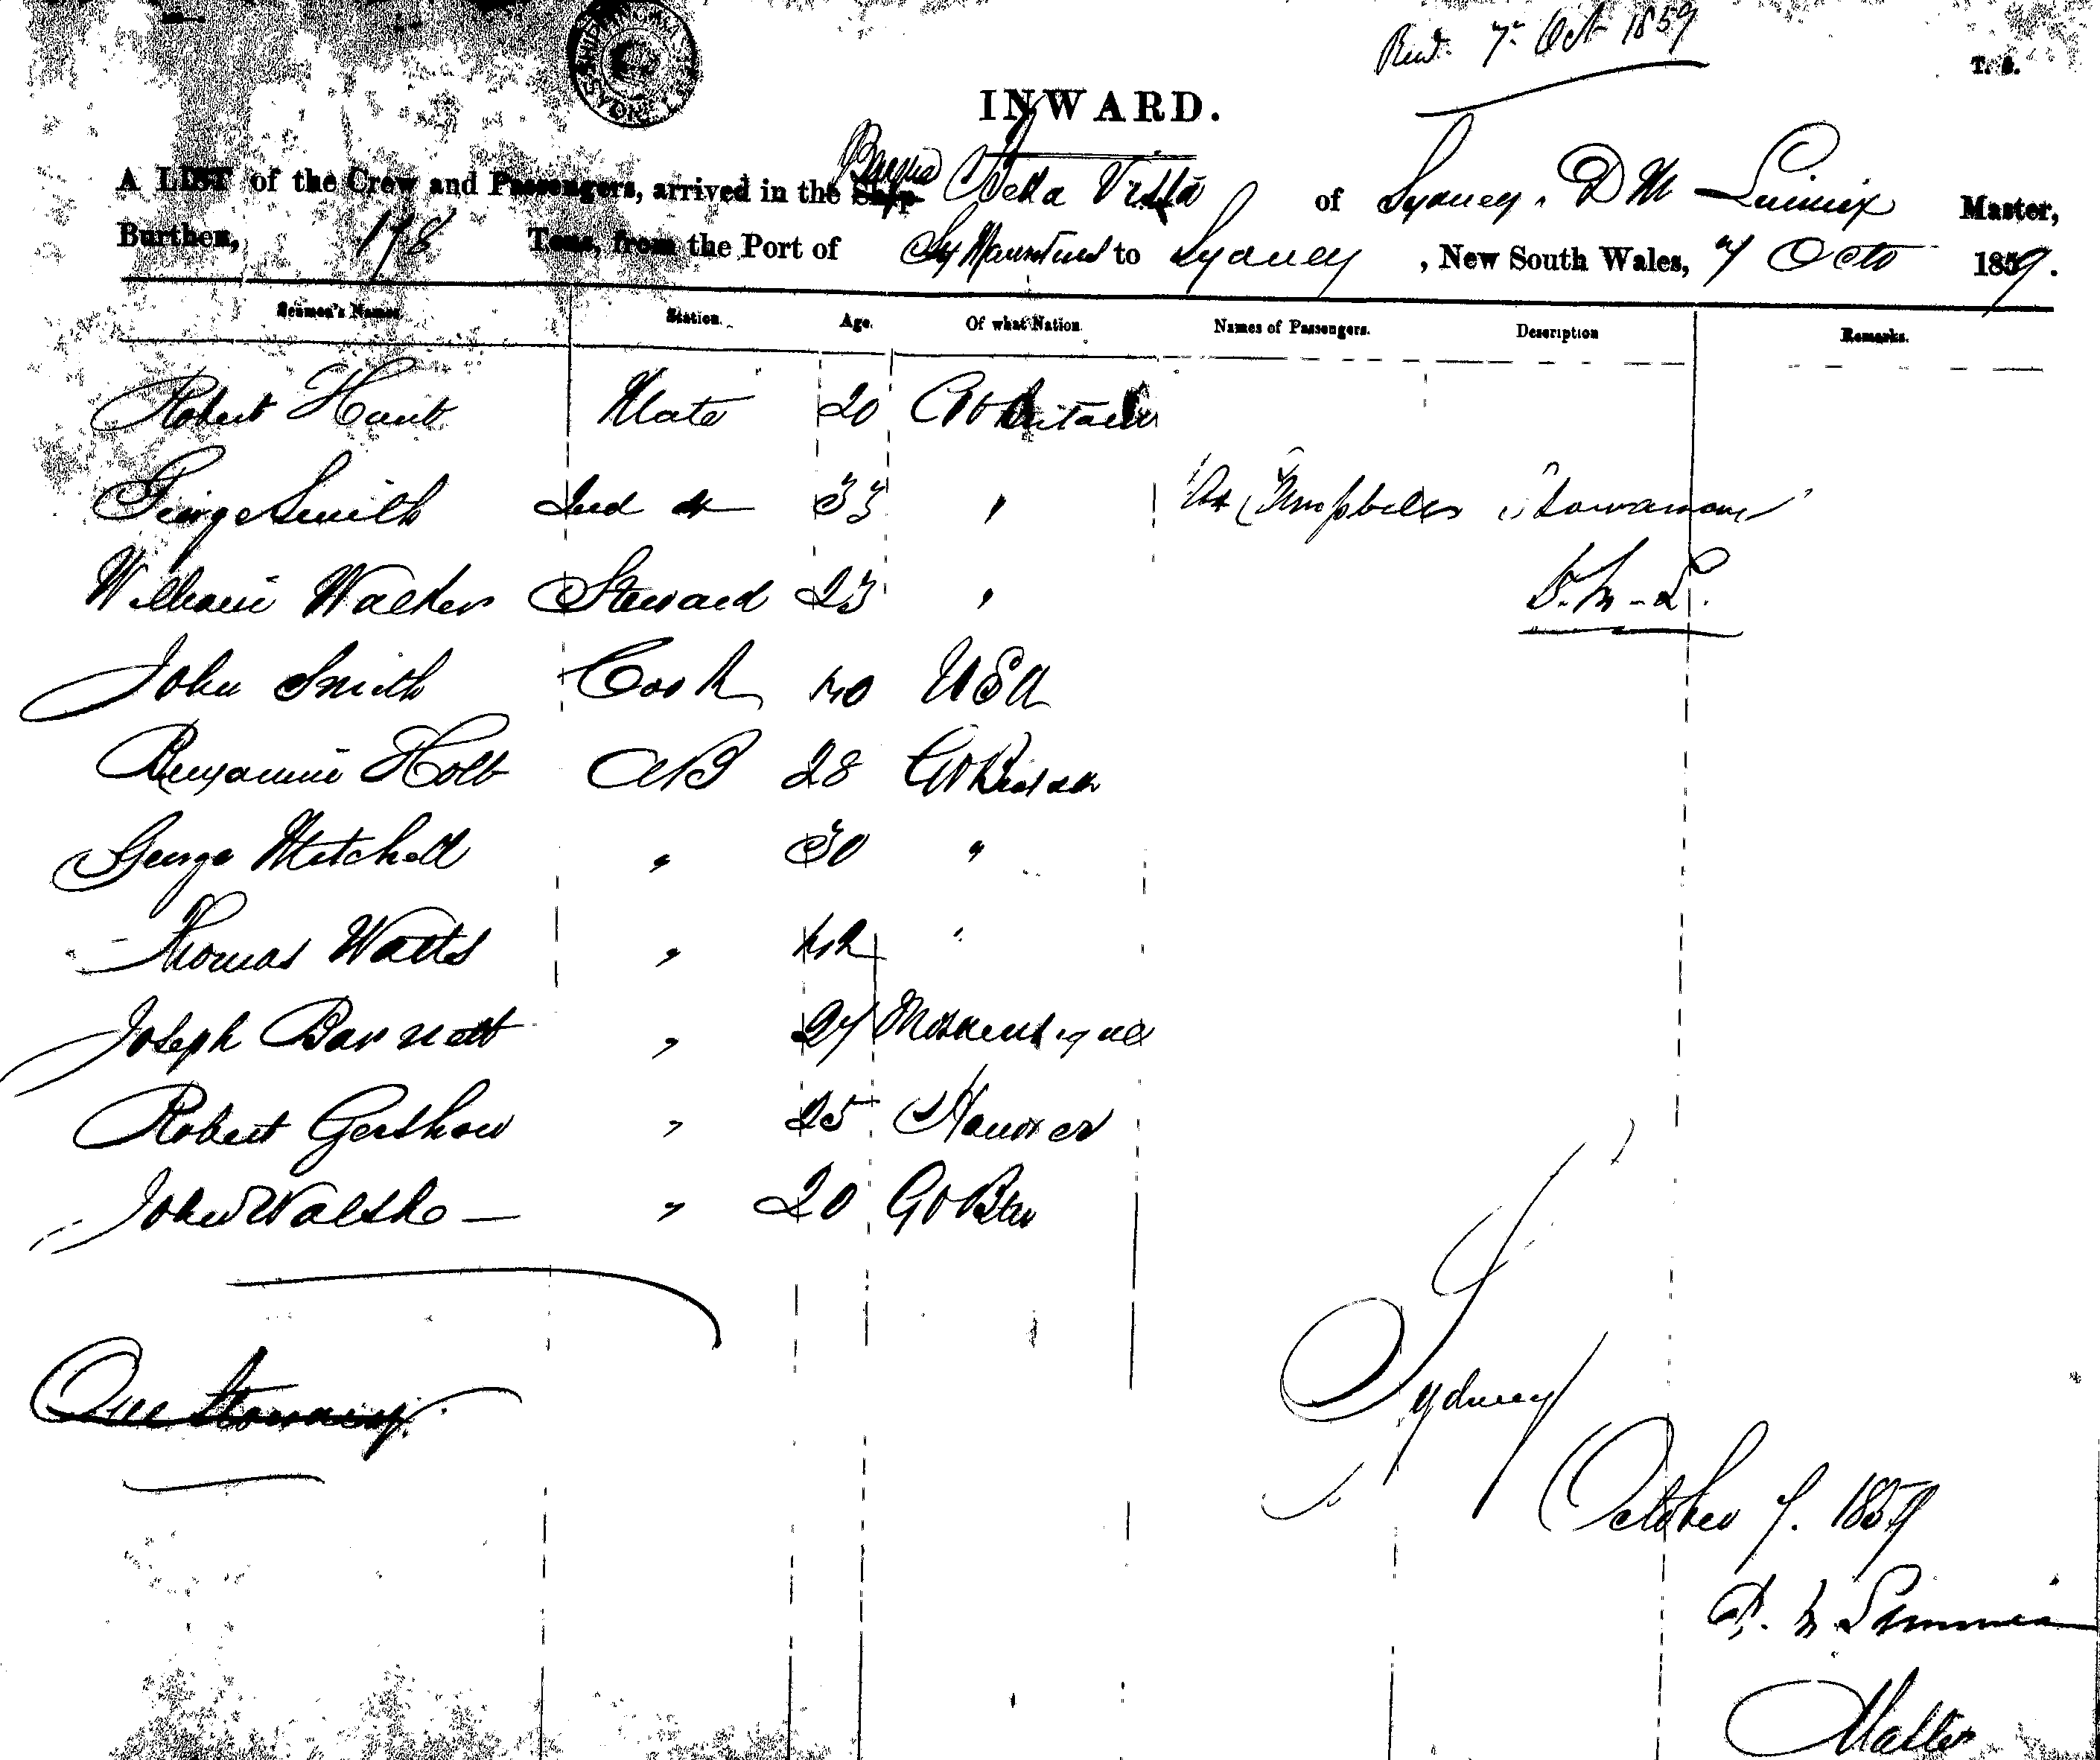 7 Oct 1859
INWARD.
A LIST of the Crew and Passengers, arrived in the Ship Barque Bella Vista of Sydney, D M Master,
Burthen, 198 Tons, from the Port of Mauritius to Sydney, New South Wales, 7 Octo 1859.
Seamen's Names. Station. Age. Of what Nation. Names of Passengers. Description Remarks.
Robert Hunt Mate 20 Gt Britain
George Smith 2nd do 33 " Campbell Stowaway
William Walker Steward 23 "
John Smith Cook 40 USA
Benjamin Holt AB 28 Gt Britain
George Mitchell " 30 "
Thomas Watts " 42 "
Joseph Barnett " 27
Robert Gershow " 25 Hanover
John Walsh " 20 Gt Brn
One Stowaway.
Sydney
October 7. 1859
Master